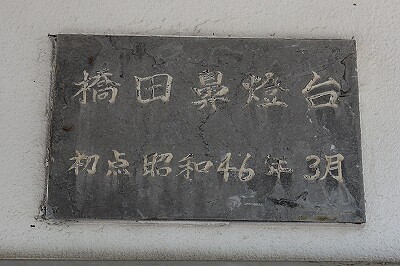 橋田鼻燈台
初点昭和46年3月